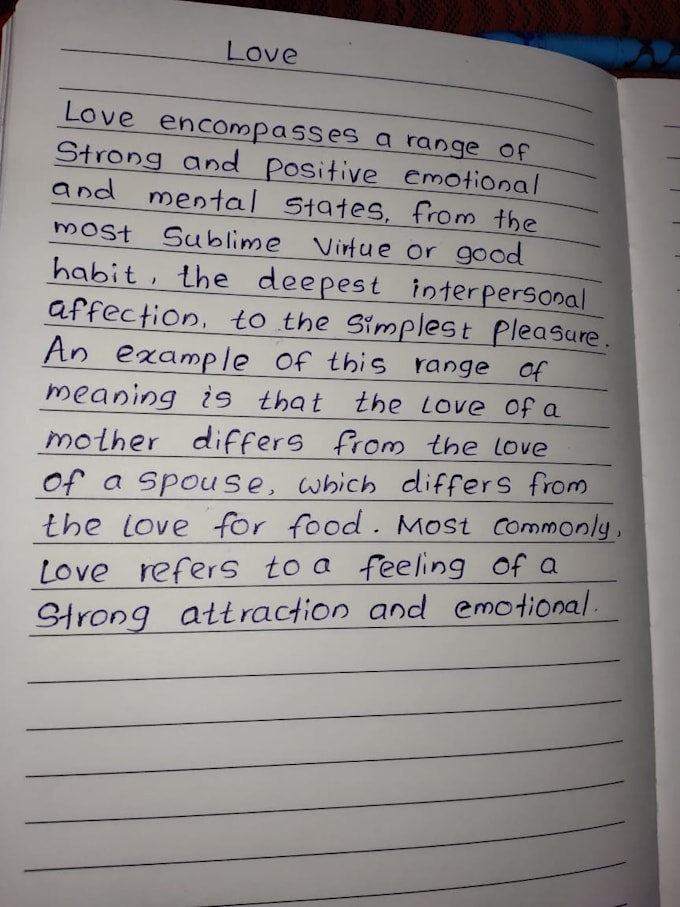 Love
Love encompasses a range of
Strong and positive emotional
and mental states, from the
most Sublime Virtue or good
habit, the deepest interpersonal
affection, to the Simplest Pleasure.
An example of this range of
meaning is that the love of a
mother differs from the love
of a spouse, which differs from
the love for food. Most commonly,
Love refers to a feeling of a
Strong attraction and emotional.